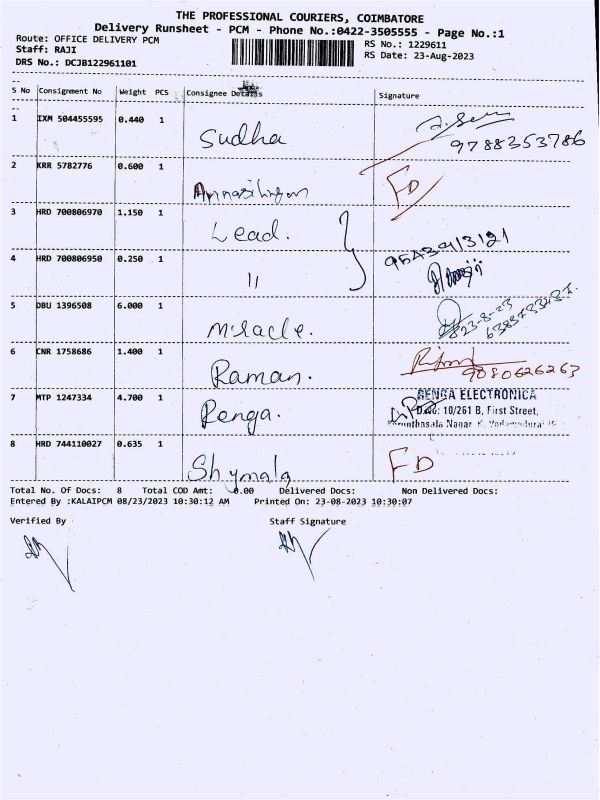 THE PROFESSIONAL COURIERS, COIMBATORE
Delivery Runsheet - PCM - Phone No.:0422-3505555 - Page No.:1
Route: OFFICE DELIVERY PCM
RS No.: 1229611
Staff: RAJI
RS Date: 23-Aug-2023
DRS No.: DCJB122961101
S No Consignment No Weight PCS Consignee Details Signature
1 IXM 504455595 0.440 1 Sudha
9788353786
2 KRR 5782776 0.600 1 FD
3 HRD 700806970 1.150 1 Lead.
9543943121
4 HRD 700806950 0.250 1 11
5 DBU 1396508 6.000 1 Miracle.
23-8-23
6 CNR 1758686 1.400 1 Raman.
9080626263
7 MTP 1247334 4.700 1 Renga.
RENGA ELECTRONICA
D.No: 10/261 B, First Street,
Nagar
8 HRD 744110027 0.635 1 Shymala FD
Total No. Of Docs: 8 Total COD Amt: 0.00 Delivered Docs: Non Delivered Docs:
Entered By :KALAIPCM 08/23/2023 10:30:12 AM Printed On: 23-08-2023 10:30:07
Verified By Staff Signature